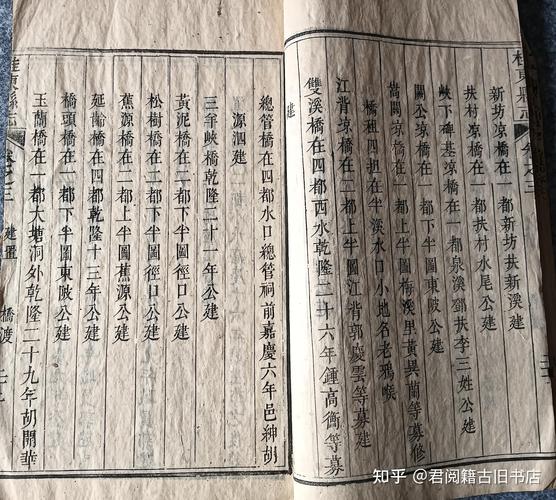 桂東縣志 卷之三
新坊涼橋在一都新坊扶新溪建
扶村涼橋在一都扶村水尾公建
峽下碑基涼橋在一都泉溪扶李三姓公建
關公涼橋在一都下半圖東陂公建
閣涼橋在一都上半圖梅溪里黃異蘭等募修
橋租四担在半溪水口小地名老鴉
江背涼橋在二都上半圖江背郭慶雲等募建
雙溪橋在四都西水乾隆二十六年鍾高衡等募
建
總管橋在四都水口總管祠前嘉慶六年邑紳胡
源泗建
三年峽橋乾隆二十一年公建
黃泥橋在二都下半圖徑口公建
松樹橋在二都下半圖徑口公建
蕉源橋在二都上半圖蕉源公建
延齡橋在四都乾隆十三年公建
橋頭橋在一都下半圖東陂公建
玉蘭橋在一都大塘洞外乾隆二十九年胡開華
桂東縣志 卷之三 建置 橋渡
知乎 @君阅籍古旧书店